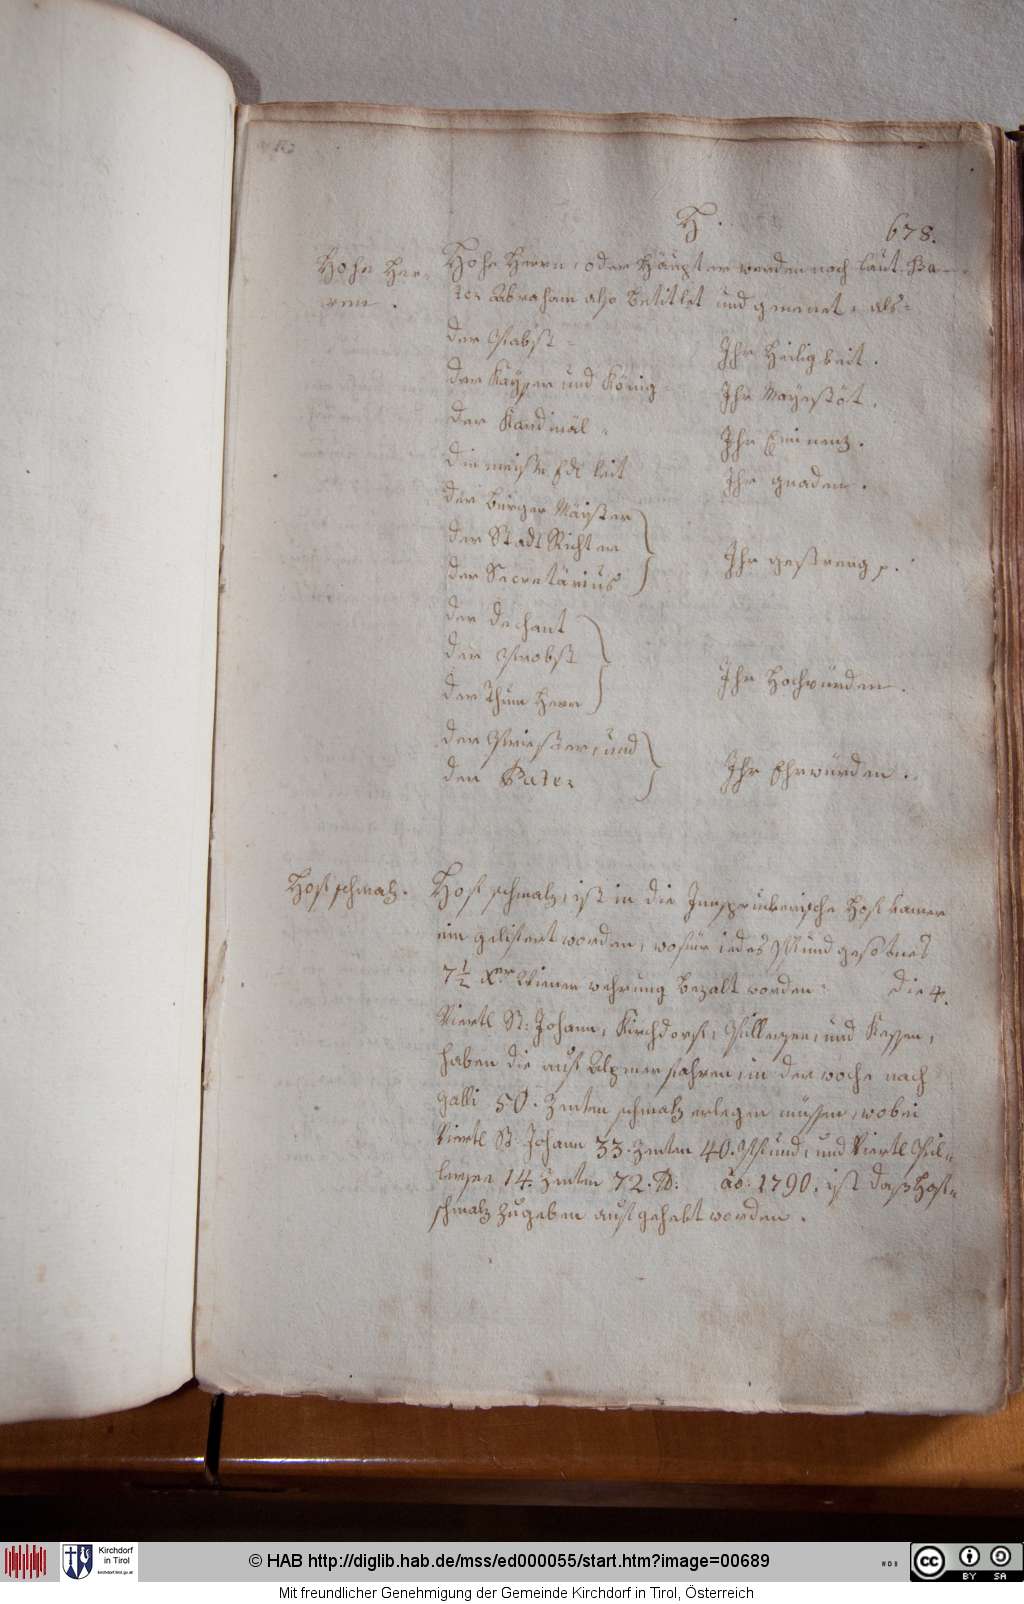 H. 678.
Hohe Her-
ren.
Hohe Herrn, oder Häupter werden noch laut Pa-
ter Abraham also betitlet und genenet, als:
der Pabst - Ihr Heiligkeit.
der Kayser und König - Ihr Mayestöt.
der Kardinäl - Ihr Eminenz.
die meiste Edl leit Ihr gnaden.
der Bürger Mäyster
der Stadt Richter
der Secretärius
Ihr gestreng
der Dechant
der Probst
der Thum Herr
Ihr Hochwürden.
der Priester, und
der Pater
Ihr Ehrwürden.
Hofschmalz.
Hofschmalz, ist in die Innsprukerische Hof kamer
ein gelifert worden, wofür iedes Pfund gesotnes
7 1/2 Xer Wiener wehrung bezalt worden: Die 4.
Viertl St: Johann, Kirchdorf, Pillersee, und Kessen,
haben die auf Alpmer fahren, in der woche nach
Galli 50. Zenten schmalz erlegen müssen, wobei
Viertl St: Johann 33. Zenten 40. Pfund, und Viertl Pil-
lersee 14. Zenten 72. ℔: ao: 1790. ist das Hof-
schmalz zugeben aufgehebt worden.
Kirchdorf
in Tirol
kirchdorf.tirol.gv.at
© HAB http://diglib.hab.de/mss/ed000055/start.htm?image=00689
WDB
cc BY SA
Mit freundlicher Genehmigung der Gemeinde Kirchdorf in Tirol, Österreich